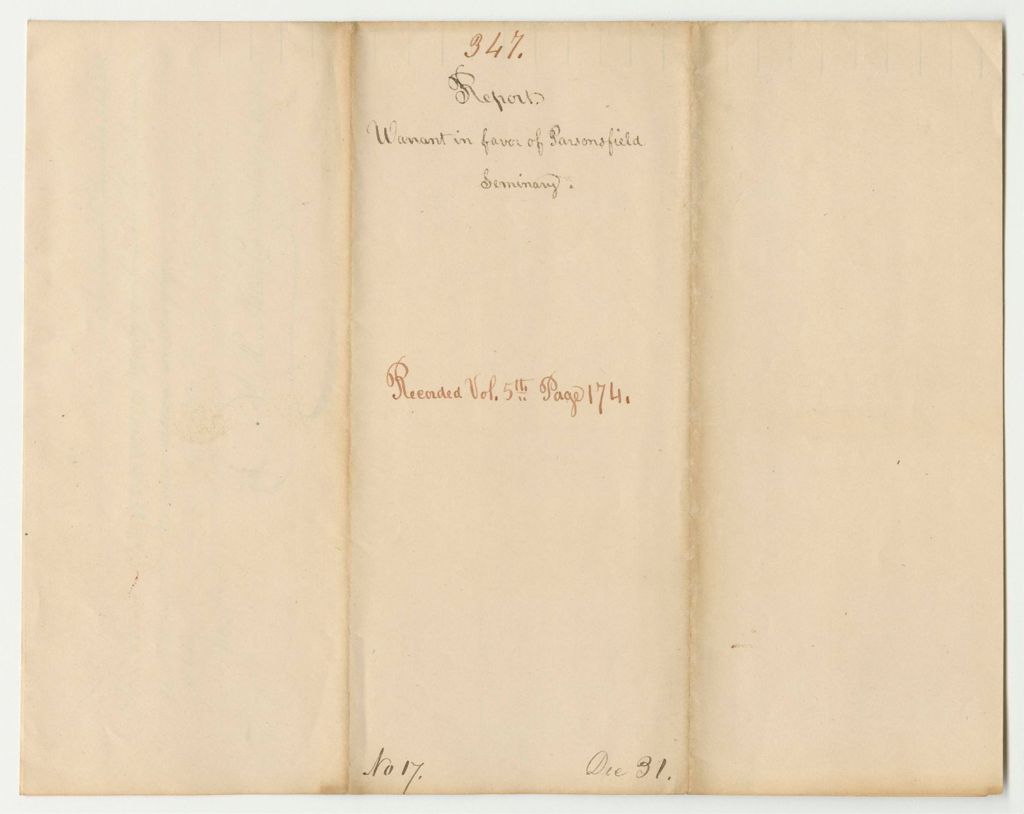 347.
Report.
Warrant in favor of Parsonsfield
Seminary.
Recorded Vol. 5th Page 174.
No 17.
Dec 31.